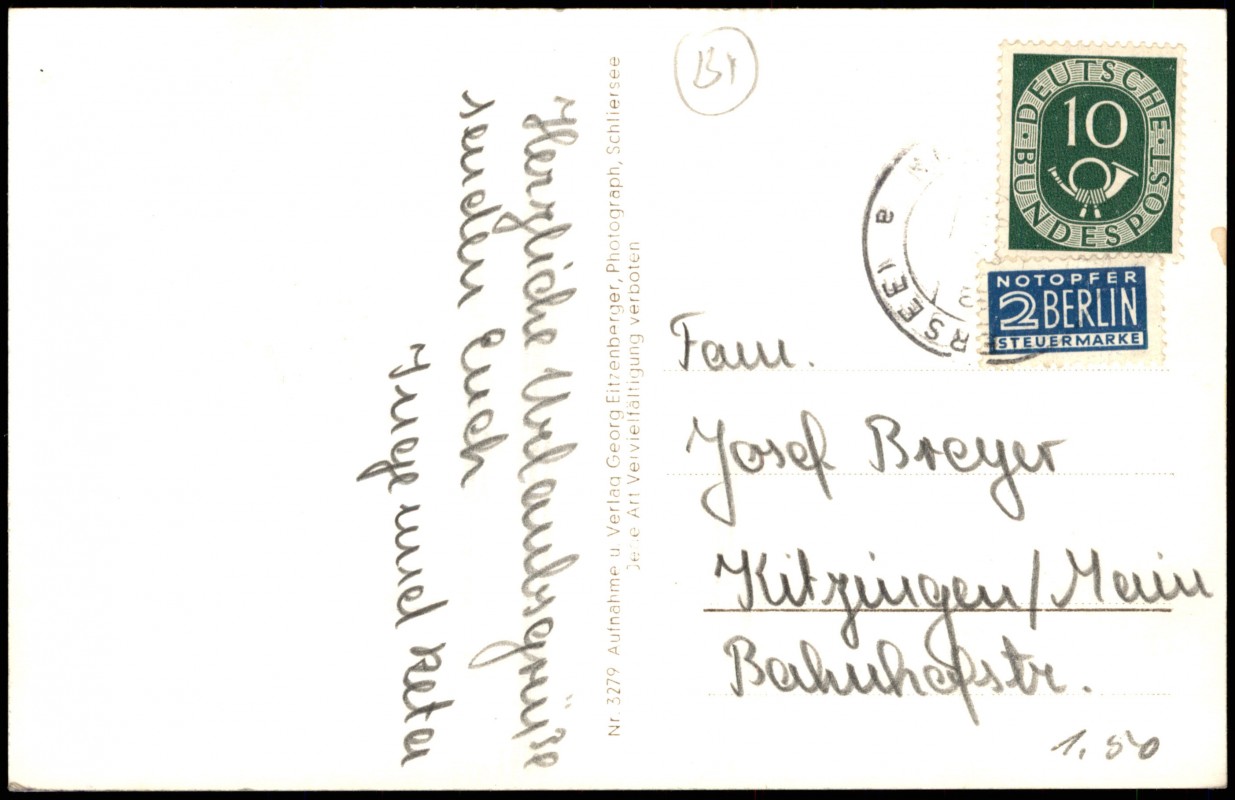 Herzliche Urlaubsgrüße
senden Euch
Inge und Reta
Nr. 3279 Aufnahme u. Verlag Georg Eitzenberger, Photograph, Schliersee
Jede Art Vervielfältigung verboten
DEUTSCHE BUNDESPOST
10
NOTOPFER
2 BERLIN
STEUERMARKE
a
Fam.
Josef Breyer
Kitzingen/Main
Bahnhofstr.
1.50